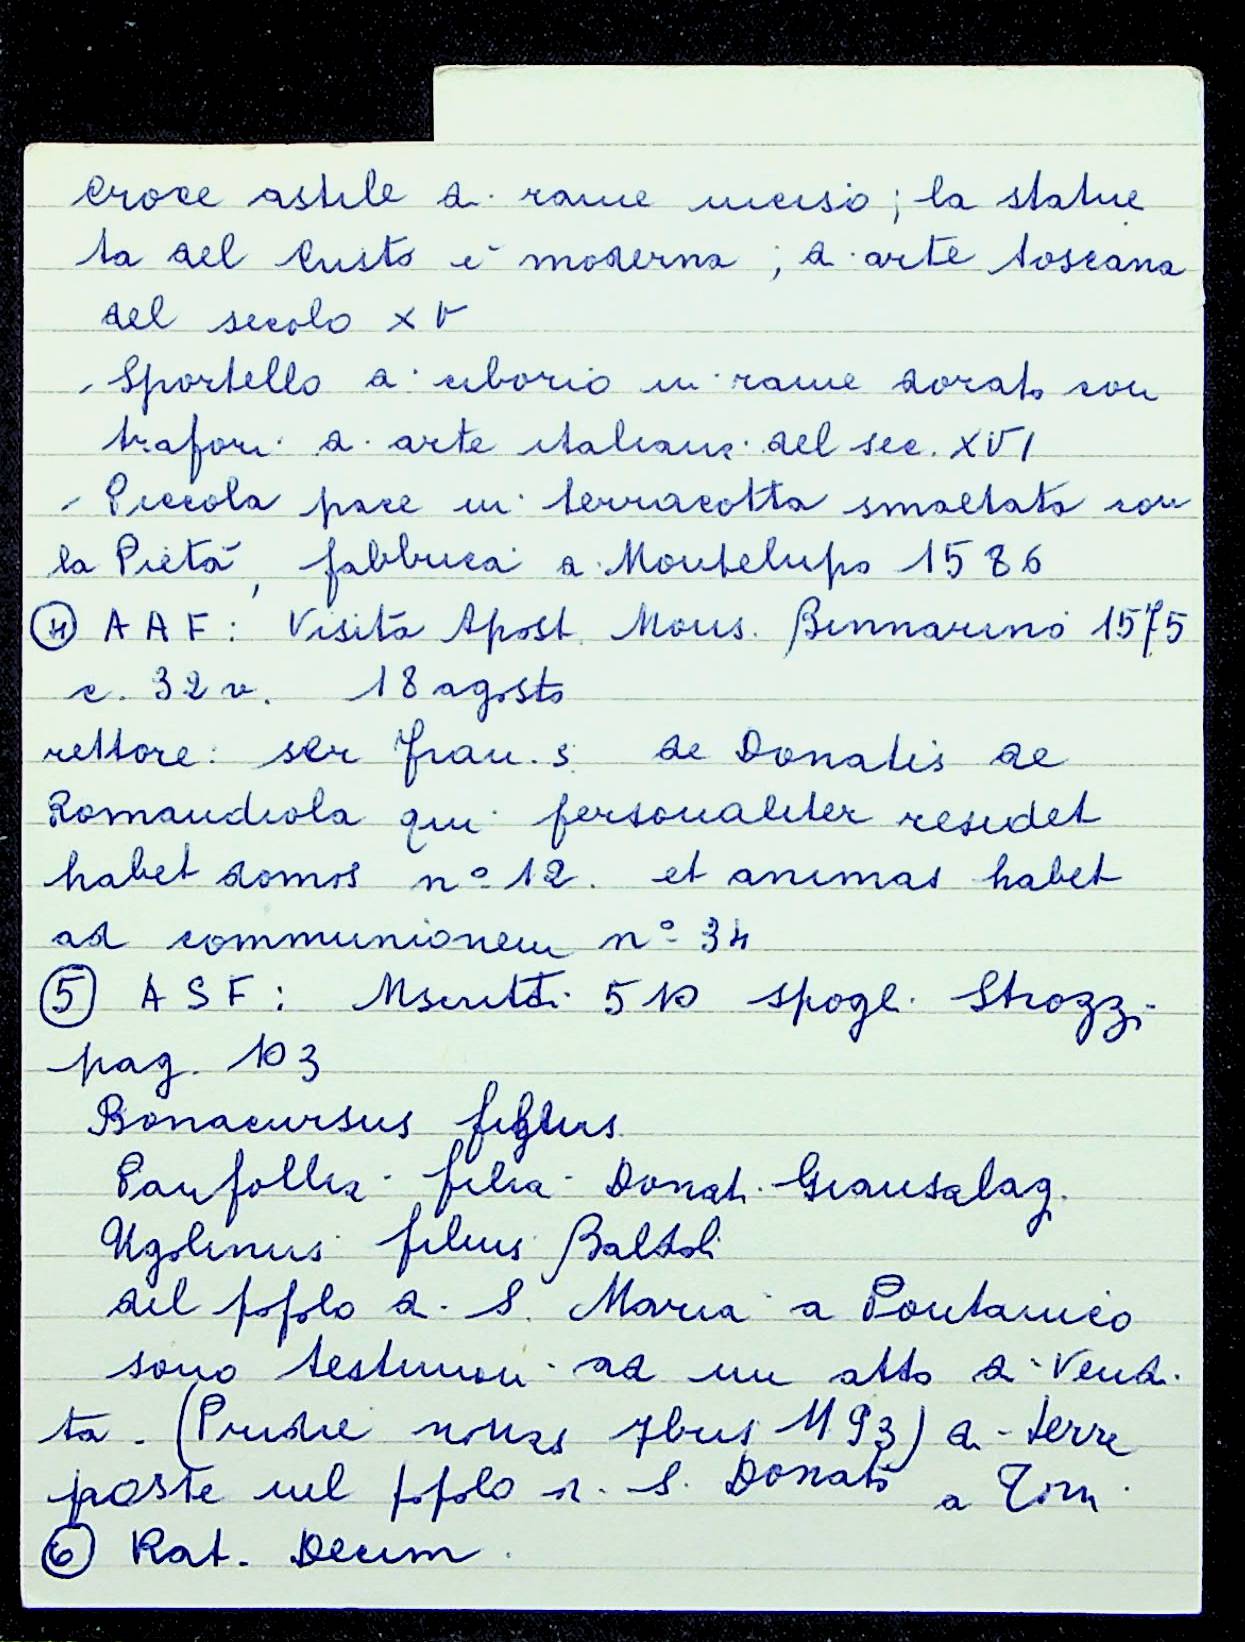 Croce astile di rame inciso; la statue
ta del Cristo è moderna; di arte toscana
del secolo XV
- Sportello di ciborio in rame dorato con
trafori di arte italiana del sec. XVI
- Piccola pace in terracotta smaltata con
la Pietà, fabbrica di Montelupo 1586
④ AAF: Visita Apost. Mons. Binnarino 1575
c. 32v. 18 agosto
rettore: ser Fran.s de Donatis de
Romandiola qui personaliter residet
habet domos n° 12. et animas habet
ad communionem n° 34
⑤ ASF: Mscritti 510 spogli Strozzi
pag. 103
Bonacursus filius
Panfollia filia Donati
Ugolinus filius Baldoli
del popolo di S. Maria a Pontanico
sono testimoni ad un atto di Vendi
ta. (Pridie nonas 7bris 1193) di terre
poste nel popolo di S. Donato a Torri
⑥ Rat. Decim.